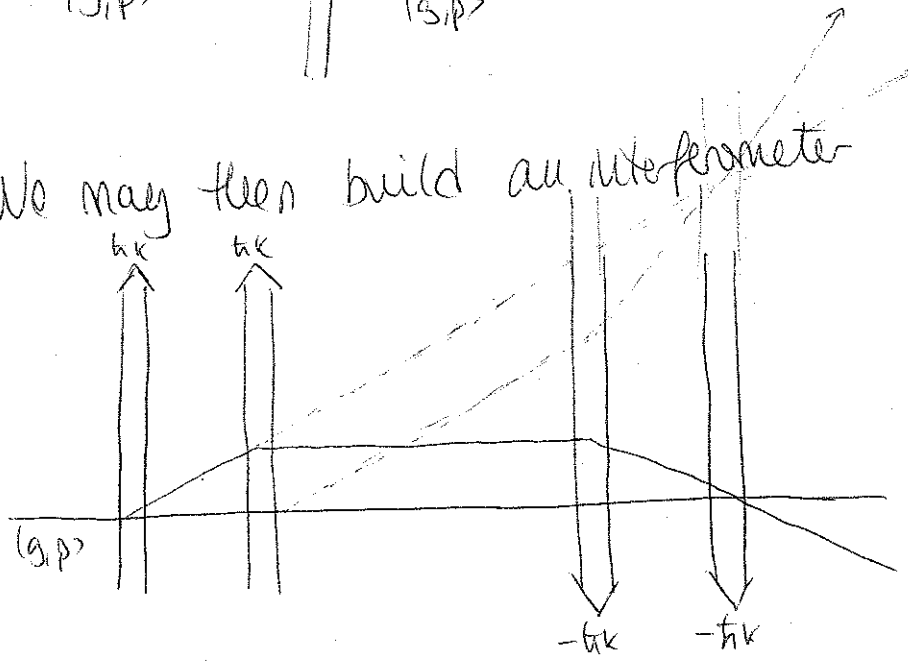 |g,p> |g,p>
We may then build an interferometer
ħk ħk
|g,p>
-ħk -ħk